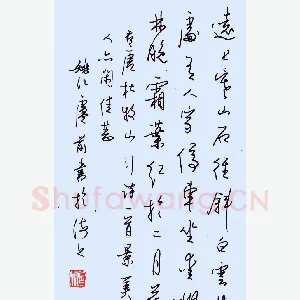 遠上寒山石径斜白雲生
處有人家停車坐愛楓
林晚霜葉紅於二月花
唐杜牧山行诗一首景美
人亦佳
書於海上
Shufawang.CN